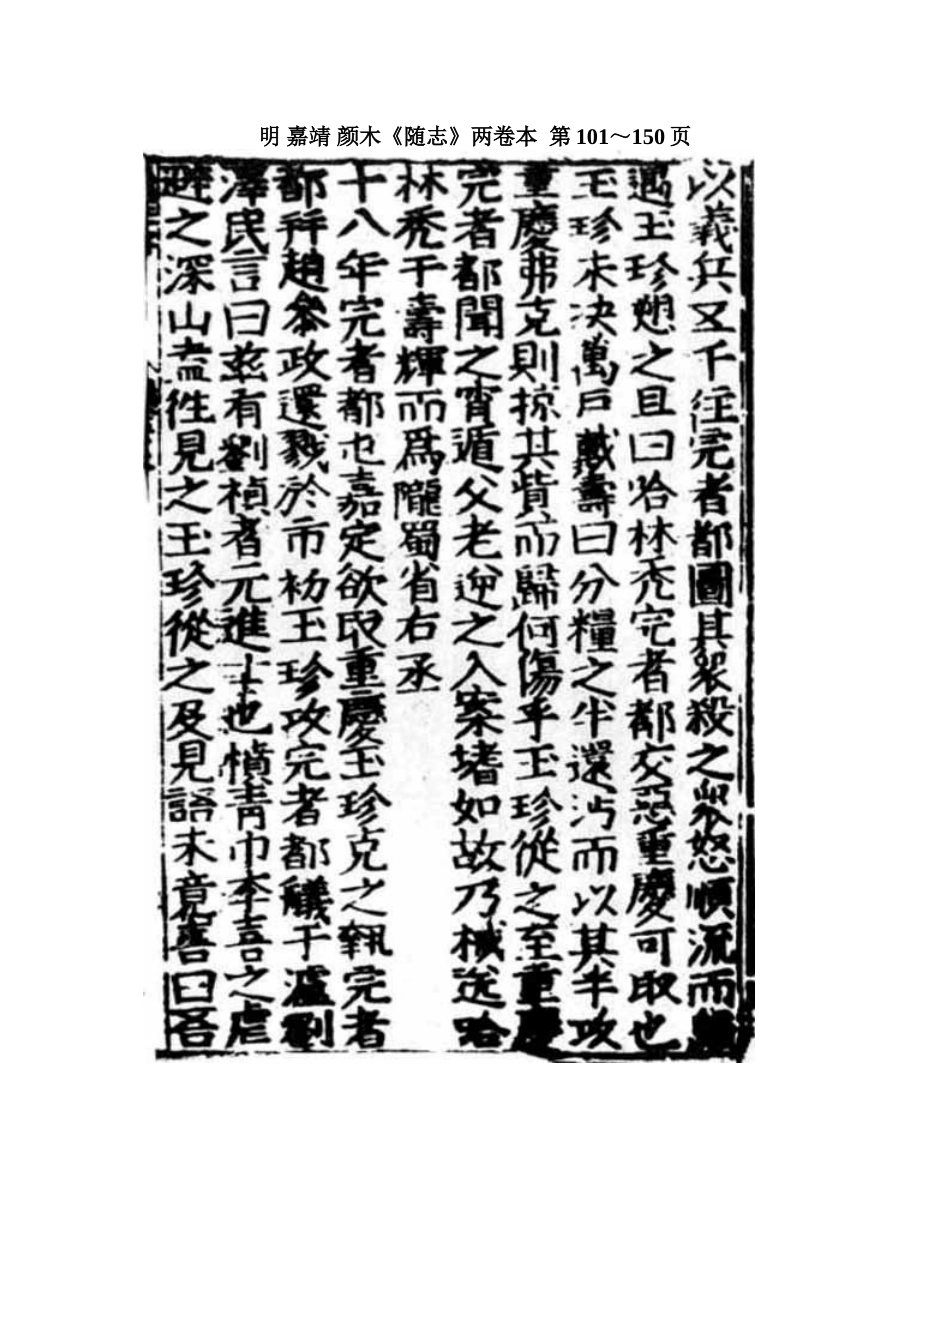 明 嘉靖 颜木《随志》两卷本 第 101～150 页
以義兵五千往完者都圖其衆殺之衆怒順流而
遇玉珍愬之且曰哈林禿完者都交惡重慶可取也
玉珍未決萬戶戴壽曰分糧之半還沔而以其半攻
重慶弗克則掠其貲而歸何傷乎玉珍從之至重慶
完者都聞之宵遁父老迎之入案堵如故乃械送哈
林禿于壽輝而爲隴蜀省右丞
十八年完者都屯嘉定欲取重慶玉珍克之執完者
都幷趙叅政還戮於市初玉珍攻完者都艤于瀘劉
澤民言曰玆有劉楨者元進士也憤靑巾李喜之虐
避之深山盍徃見之玉珍從之及見語未竟喜曰吾